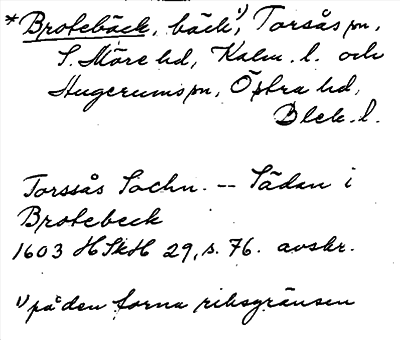 *Brotebäck, bäck¹⁾, Torsås sn,
S. Möre hd, Kalm. l. och
Hugerums sn, Östra hd,
Blek. l.
Torssås Sochn. -- Sädan i
Brotebeck
1603 HSkH 29, s. 76. avskr.
¹⁾ på den forna riksgränsen